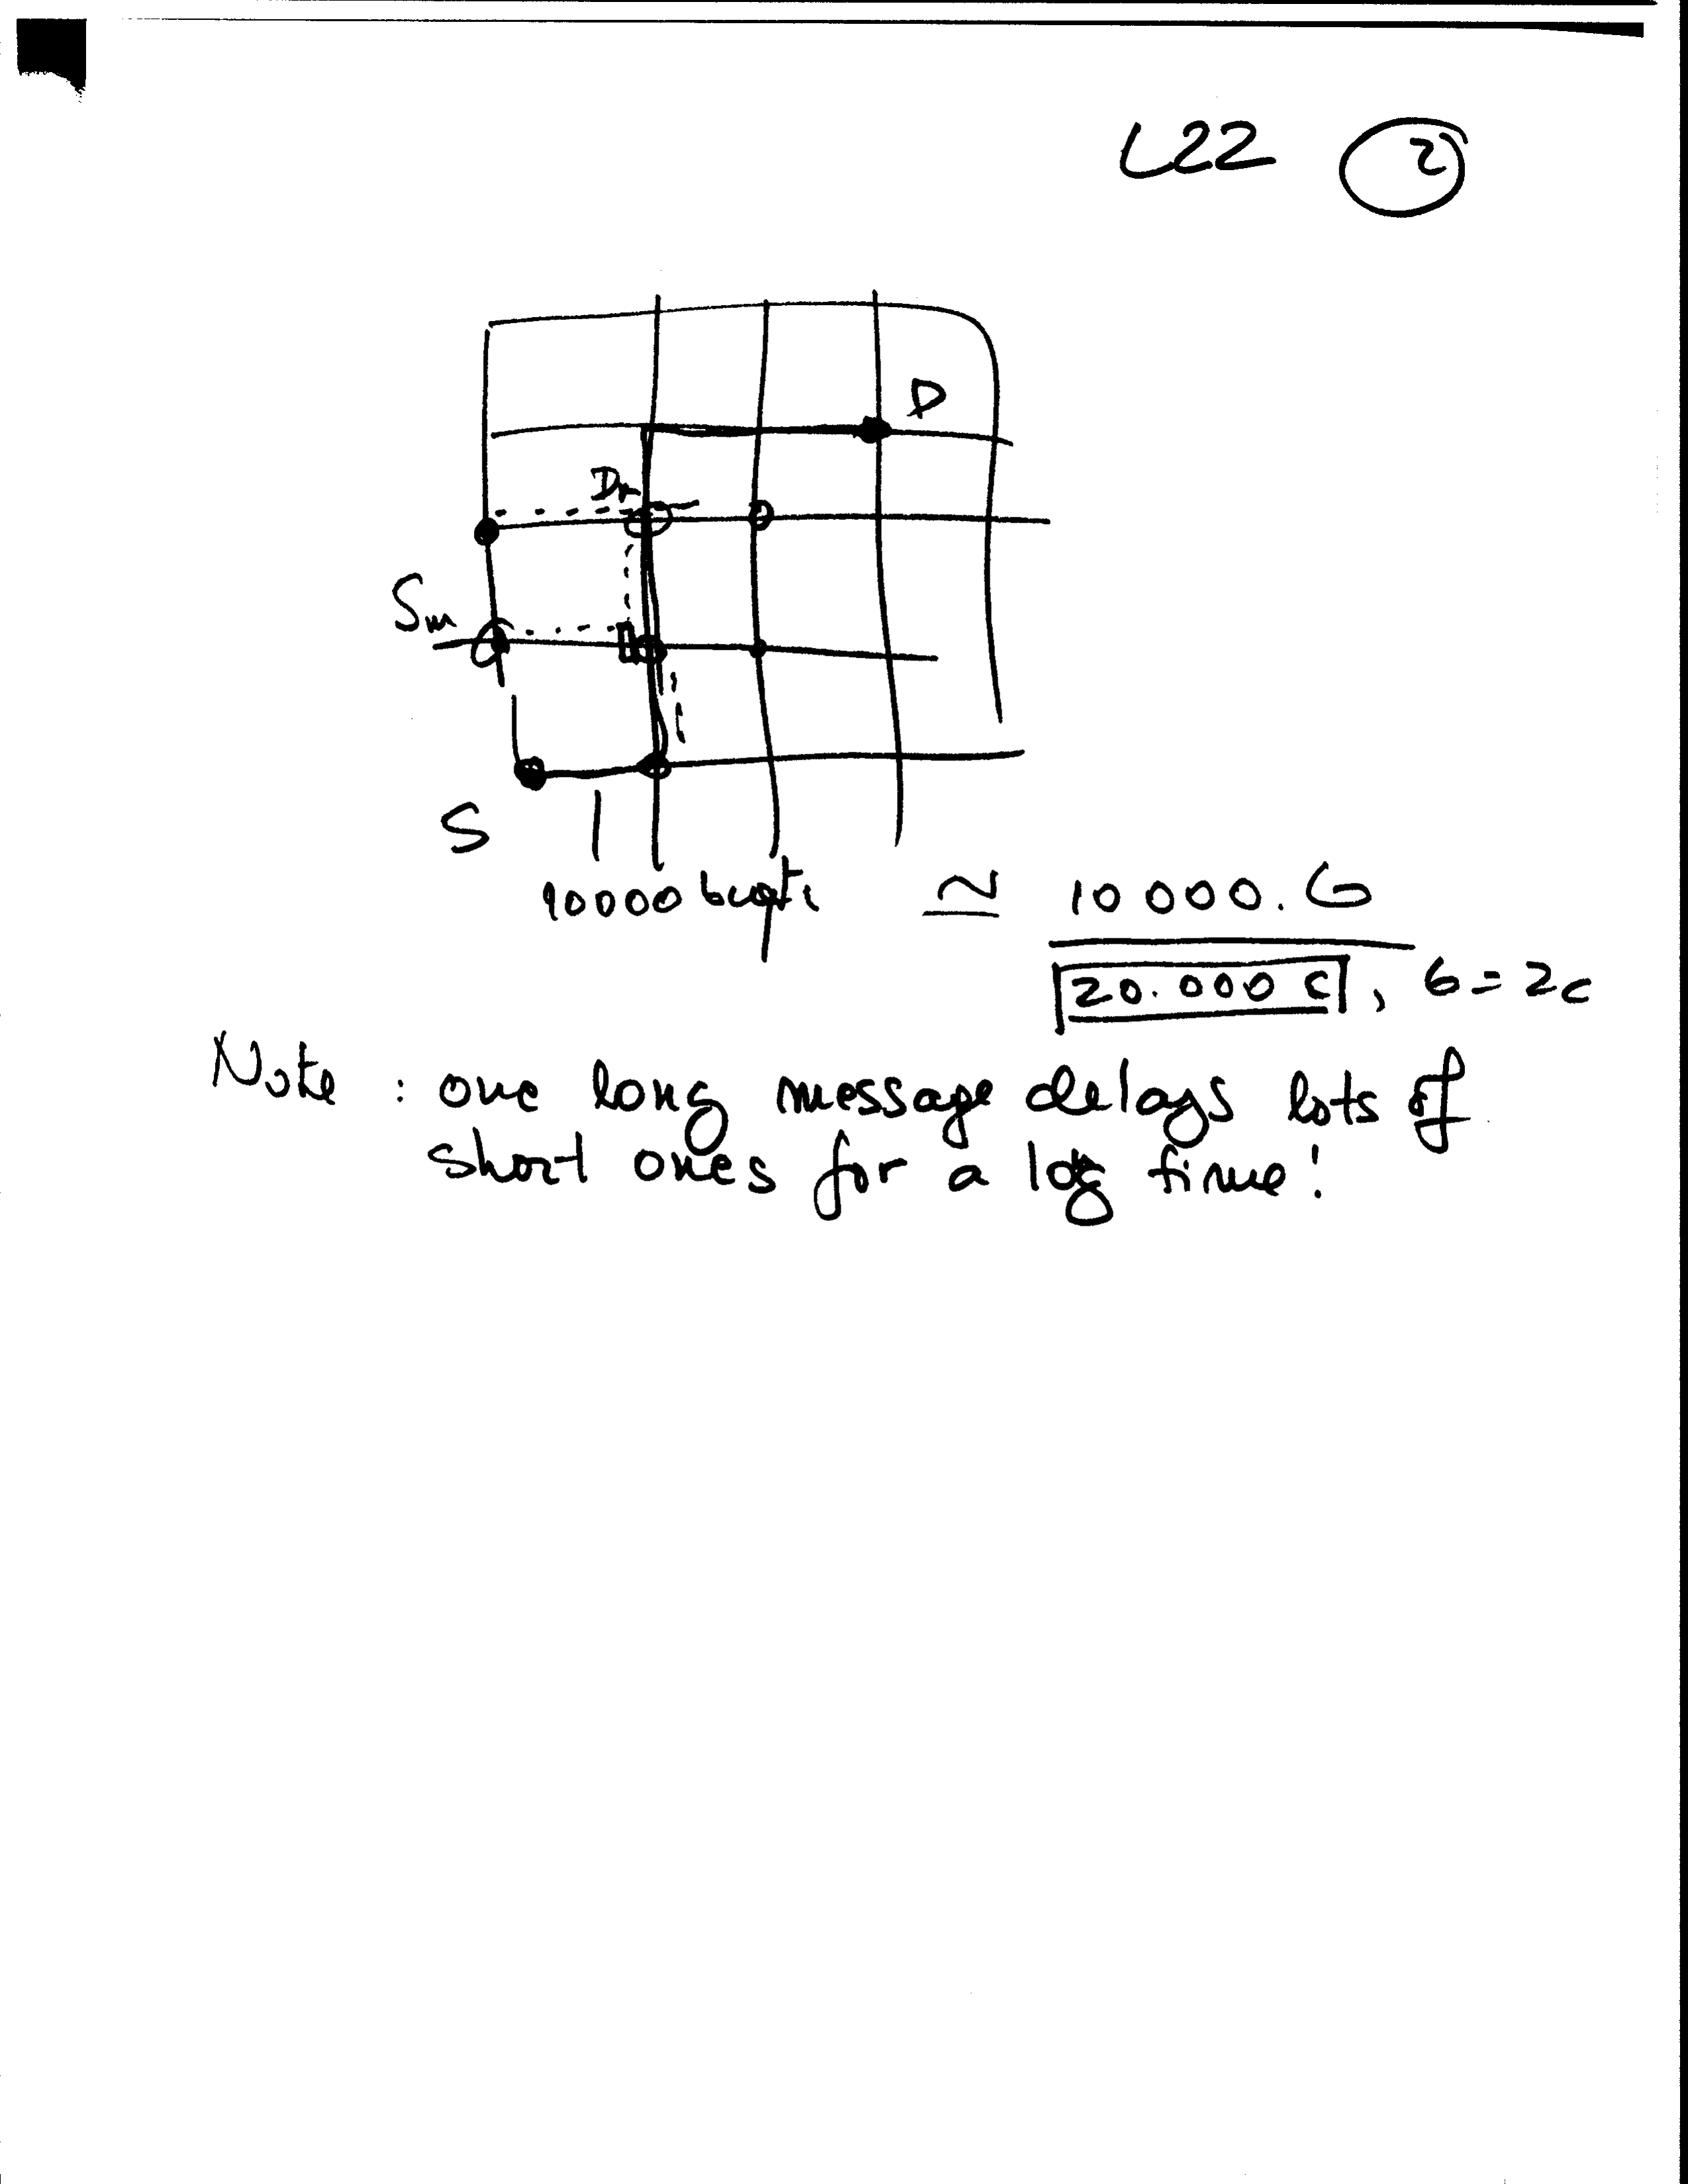 L22 2
D
Dm
Sm
S
10000 ≃ 10 000. G
20.000 c , G = 2c
Note : one long message delays lots of
short ones for a log time!